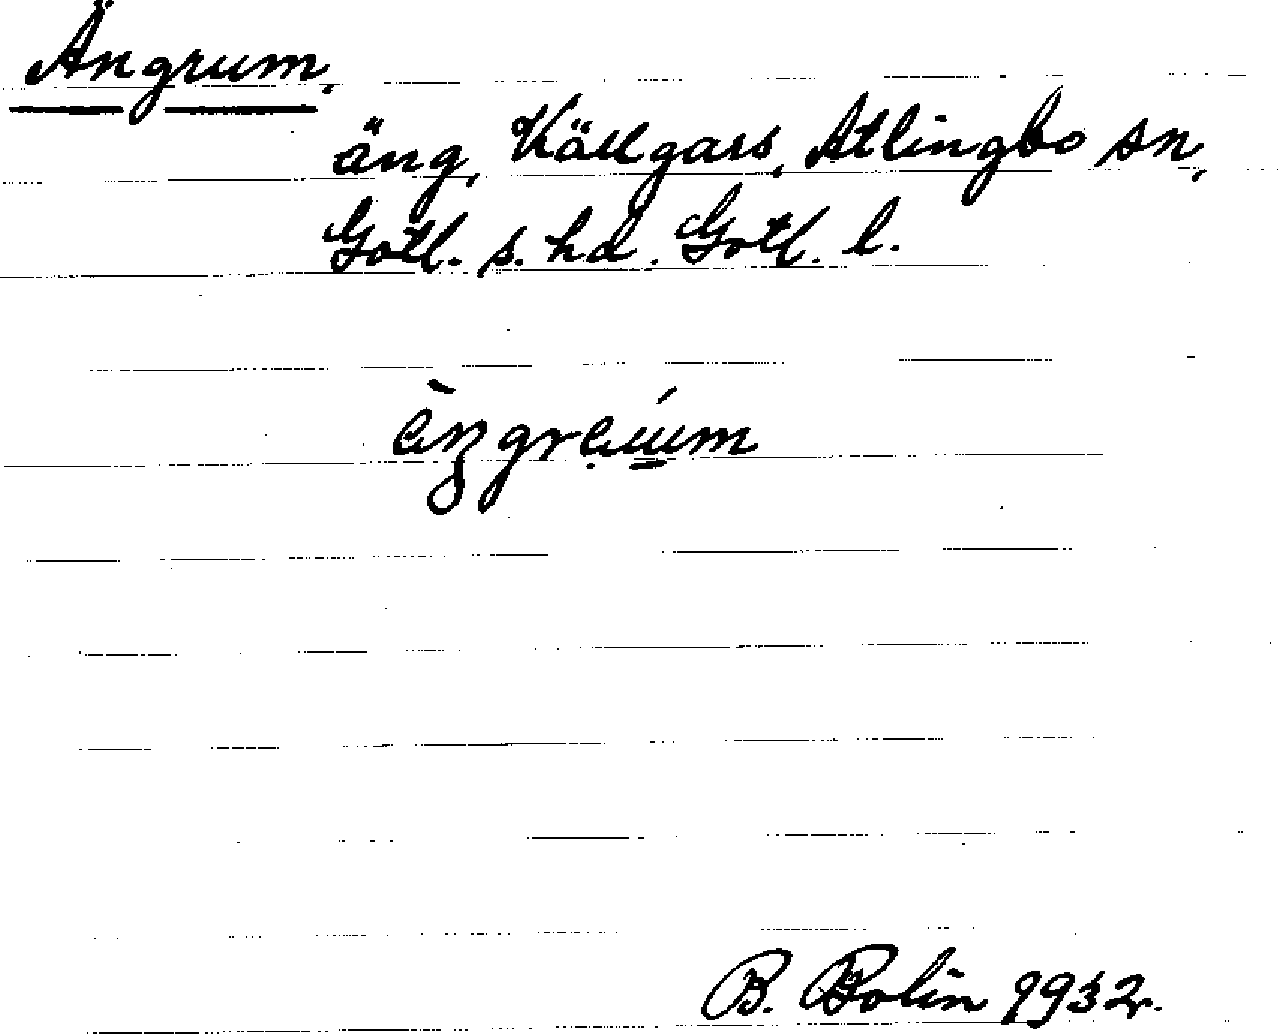 Ängrum.
äng, Källgars, Atlingbo sn,
Gotl. s. hd. Gotl. l.
B. Bolin 1932.